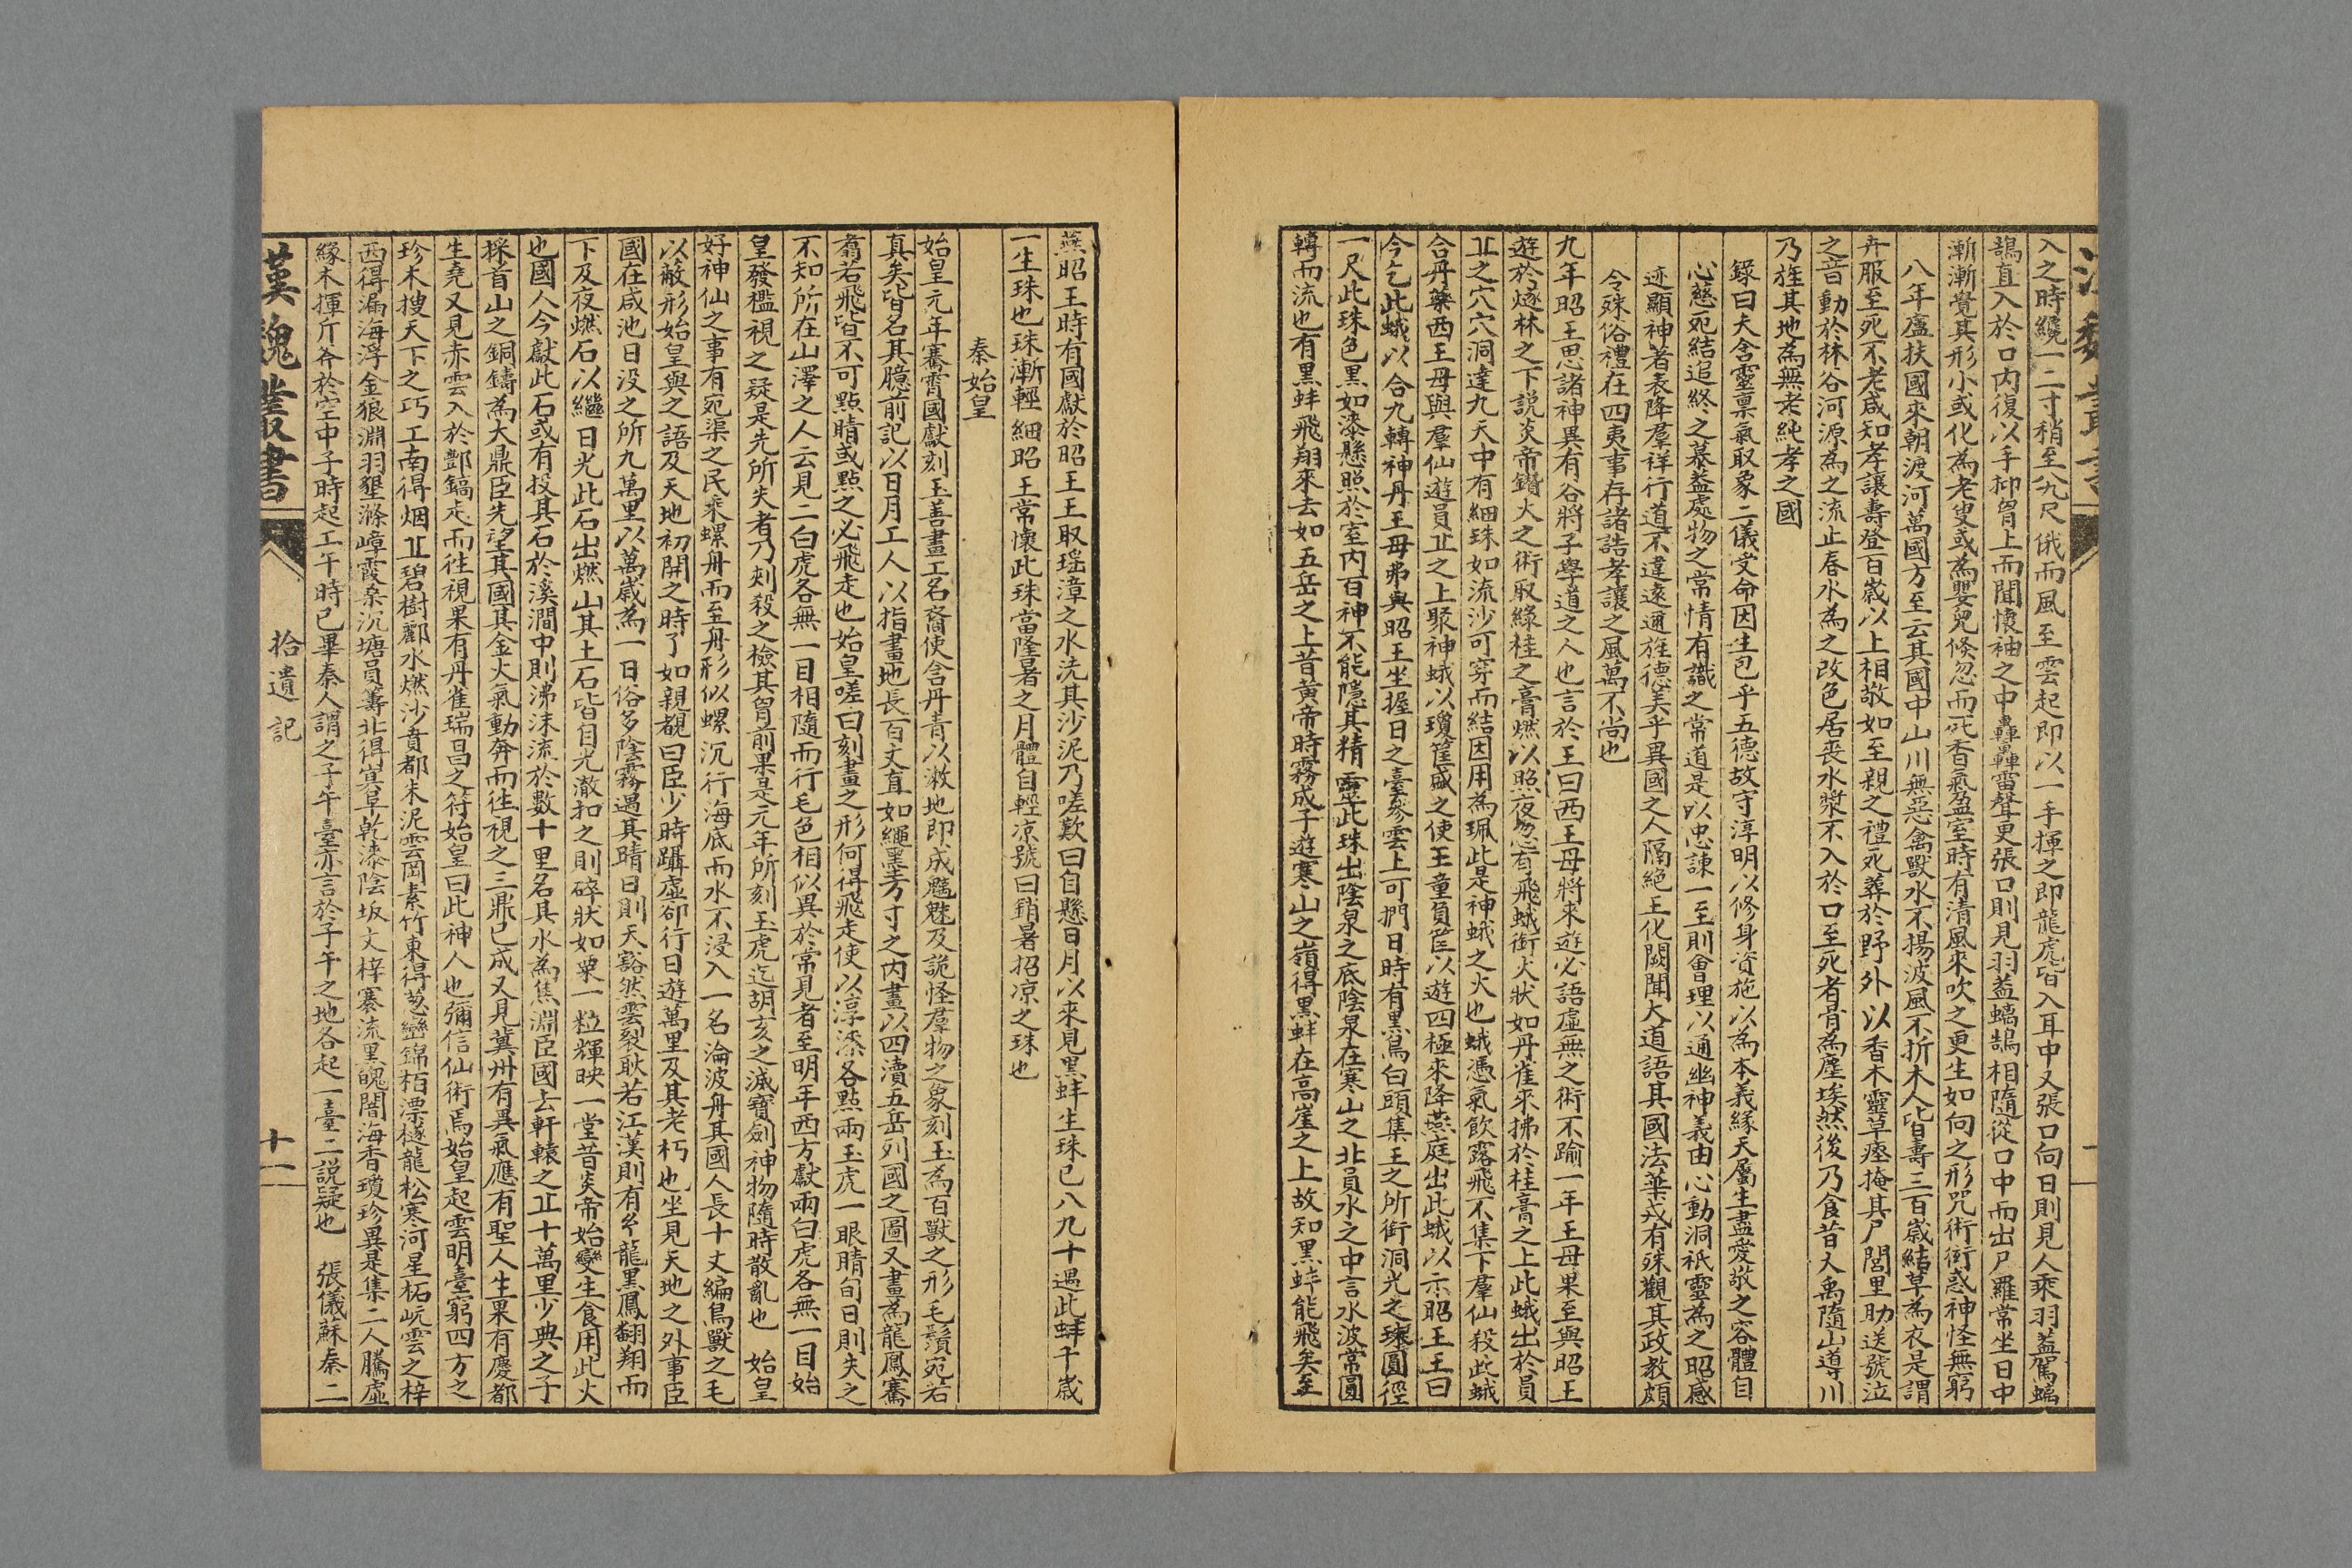 入之時纔一二寸稍至八九尺俄而風至雲起即以一手揮之即龍虎皆入耳中又張口向日則見人乘羽蓋駕螭
鵠直入於口內復以手抑胷上而聞懷袖之中轟轟雷聲更張口則見羽蓋螭鵠相隨從口中而出尸羅常坐日中
漸漸覺其形小或化為老叟或為嬰兒倏忽而死香氣盈室時有清風來吹之更生如向之形咒術衒惑神怪無窮
八年盧扶國來朝渡河萬國方至云其國中山川無惡禽獸水不揚波風不折木人皆壽三百歲結草為衣是謂
卉服至死不老咸知孝讓壽登百歲以上相敬如至親之禮死葬於野外以香木靈草瘞掩其尸閭里助送號泣
之音動於林谷河源為之流止春水為之改色居喪水漿不入於口至死者骨為塵埃然後乃食昔大禹隨山導川
乃旌其地為無老純孝之國
錄曰夫含靈稟氣取象二儀受命因生包乎五德故守淳明以修身資施以為本義緣天屬生盡愛敬之容體自
心慈死結追終之慕蓋處物之常情有識之常道是以忠諫一至則會理以通幽神義由心動洞祇靈為之昭感
迹顯神著表降羣祥行道不違遠邇旌德美乎異國之人隔絕王化闕聞大道語其國法華戎有殊觀其政教頗
令殊俗禮在四夷事存諸誥孝讓之風萬不尚也
九年昭王思諸神異有谷將子學道之人也言於王曰西王母將來遊必語虛無之術不踰一年王母果至與昭王
遊於燧林之下說炎帝鑽火之術取綠桂之膏燃以照夜忽有飛蛾銜火狀如丹雀來拂於桂膏之上此蛾出於員
丘之穴穴洞達九天中有細珠如流沙可穿而結因用為珮此是神蛾之火也蛾憑氣飲露飛不集下羣仙殺此蛾
合丹藥西王母與羣仙遊員丘之上聚神蛾以瓊筐盛之使玉童負筐以遊四極來降燕庭出此蛾以示昭王王曰
今乞此蛾以合九轉神丹王母弗與昭王坐握日之臺參雲上可捫日時有黑鳥白頭集王之所銜洞光之珠圓徑
一尺此珠色黑如漆懸照於室內百神不能隱其精靈此珠出陰泉之底陰泉在寒山之北員水之中言水波常圓
轉而流也有黑蚌飛翔來去如五岳之上昔黃帝時霧成子遊寒山之嶺得黑蚌在高崖之上故知黑蚌能飛矣至
燕昭王時有國獻於昭王王取瑤漳之水洗其沙泥乃嗟歎曰自懸日月以來見黑蚌生珠已八九十遇此蚌千歲
一生珠也珠漸輕細昭王常懷此珠當隆暑之月體自輕涼號曰銷暑招涼之珠也
秦始皇
始皇元年騫霄國獻刻玉善畫工名裔使含丹青以漱地即成魑魅及詭怪羣物之象刻玉為百獸之形毛鬚宛若
真矣皆名其臆前記以日月工人以指畫地長百丈直如繩墨方寸之內畫以四瀆五岳列國之圖又畫為龍鳳騫
翥若飛皆不可點睛或點之必飛走也始皇嗟曰刻畫之形何得飛走使以淳漆各點兩玉虎一眼睛旬日則失之
不知所在山澤之人云見二白虎各無一目相隨而行毛色相似異於常見者至明年西方獻兩白虎各無一目始
皇發檻視之疑是先所失者乃刺殺之檢其胷前果是元年所刻玉虎迄胡亥之滅寶劍神物隨時散亂也　始皇
好神仙之事有宛渠之民乘螺舟而至舟形似螺沉行海底而水不浸入一名淪波舟其國人長十丈編鳥獸之毛
以蔽形始皇與之語及天地初開之時了如親覩曰臣少時躡虛卻行日遊萬里及其老朽也坐見天地之外事臣
國在咸池日沒之所九萬里以萬歲為一日俗多陰霧遇其晴日則天豁然雲裂耿若江漢則有玄龍黑鳳翻翔而
下及夜燃石以繼日光此石出燃山其土石皆自光澈扣之則碎狀如粟一粒輝映一堂昔炎帝始變生食用此火
也國人今獻此石或有投其石於溪澗中則沸沫流於數十里名其水為焦淵臣國去軒轅之丘十萬里少典之子
採首山之銅鑄為大鼎臣先望其國其金火氣動奔而往視之三鼎已成又見冀州有異氣應有聖人生果有慶都
生堯又見赤雲入於酆鎬走而往視果有丹雀瑞昌之符始皇曰此神人也彌信仙術焉始皇起雲明臺窮四方之
珍木搜天下之巧工南得烟丘碧樹酈水燃沙賁都朱泥雲岡素竹東得葱巒錦柏漂檖龍松寒河星柘岏雲之梓
西得漏海浮金狼淵羽璧滌嶂霞桑沉塘員籌北得冥阜乾漆陰坂文梓褰流黑魄闇海香瓊珍異是集二人騰虛
緣木揮斤斧於空中子時起工午時已畢秦人謂之子午臺亦言於子午之地各起一臺二說疑也　張儀蘇秦二
漢魏叢書
拾遺記
十一